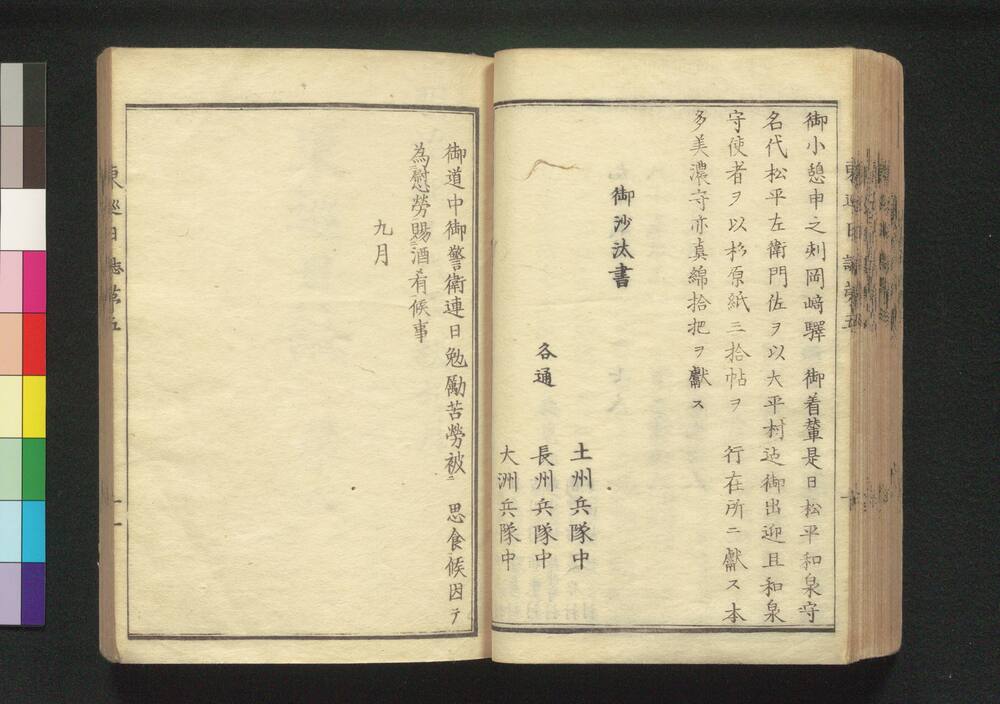 御小憩申之刻岡﨑驛　御着輦是日松平和泉守
名代松平左衛門佐ヲ以大平村迠御出迎且和泉
守使者ヲ以杉原紙三拾帖ヲ　行在所ニ獻ス本
多美濃守亦真綿拾把ヲ獻ス
御沙汰書
土州兵隊中
各通　長州兵隊中
大洲兵隊中
御道中御警衛連日勉勵苦勞被ニ　思食候因テ
為慰勞賜酒肴候事
九月
東巡日誌第五
十一